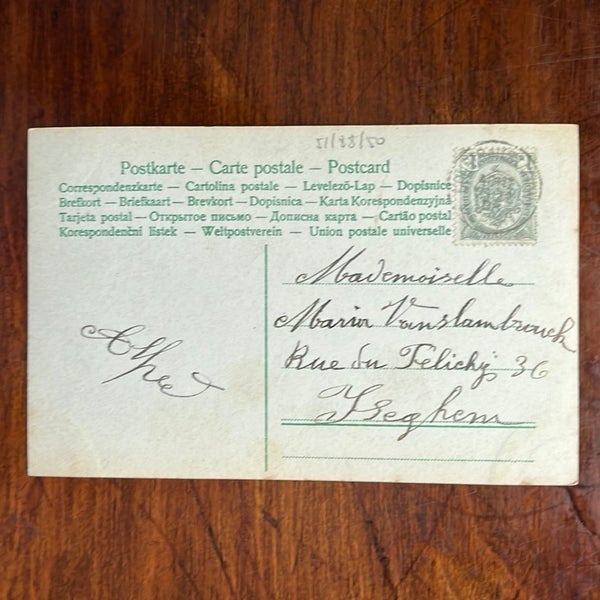 51/88/50
Postkarte — Carte postale — Postcard
Correspondenzkarte — Cartolina postale — Levelező-Lap — Dopisnice
Brefkort — Briefkaart — Brevkort — Dopisnica — Karta Korespondenzyjna
Tarjeta postal — Открытое письмо — Дописна карта — Cartão postal
Korespondenční listek — Weltpostverein — Union postale universelle
Mademoiselle
Maria Vanslambrouck
Rue du 36
Iseghem